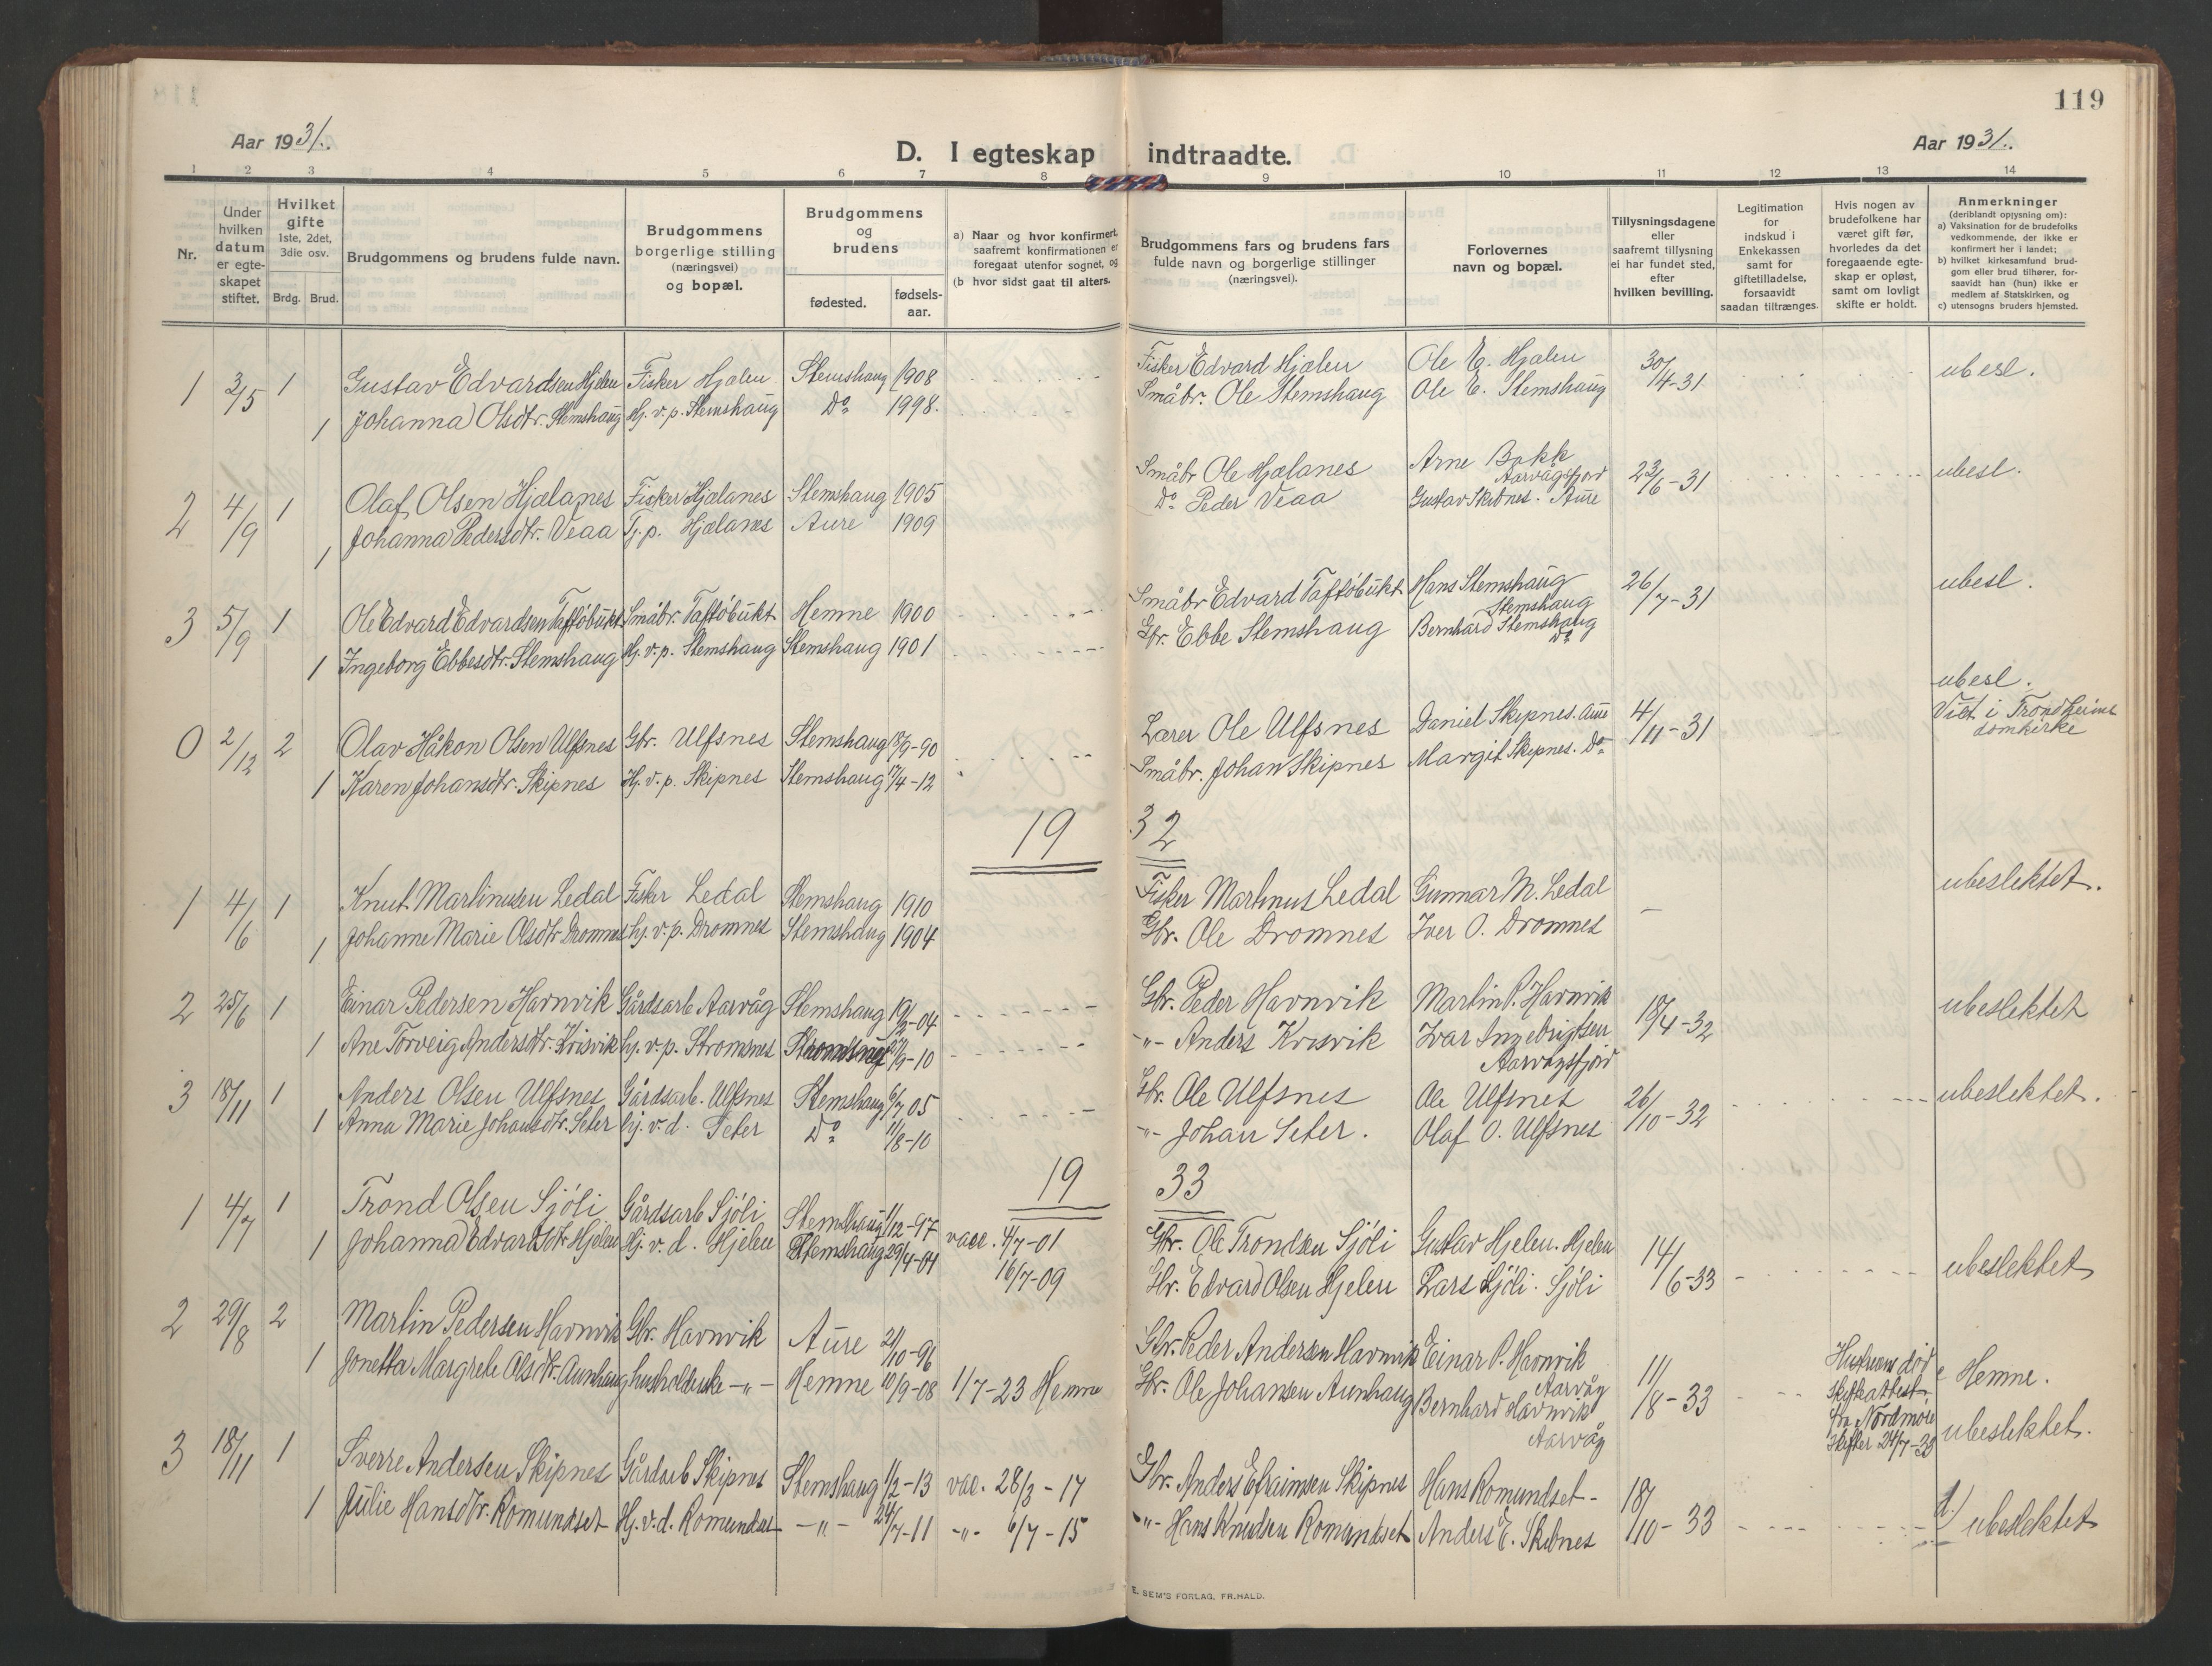 119
Aar 1931.
D. I egteskap indtraadte.
Aar 1931.
1 2 3 4 5 6 7 8 9 10 11 12 13 14
Nr.
Under hvilken datum er egte-skapet stiftet.
Hvilket gifte 1ste, 2det, 3die osv.
Brdg. Brud.
Brudgommens og brudens fulde navn.
Brudgommens borgerlige stilling (næringsvei) og bopæl.
Brudgommens og brudens
fødested. fødsels-aar.
a) Naar og hvor konfirmert, saafremt konfirmationen er foregaat utenfor sognet, og
(b hvor sidst gaat til alters.
Brudgommens fars og brudens fars fulde navn og borgerlige stillinger (næringsvei).
Forlovernes navn og bopæl.
Tillysningsdagene eller saafremt tillysning ei har fundet sted, efter hvilken bevilling.
Legitimation for indskud i Enkekassen samt for giftetilladelse, forsaavidt saadan tiltrænges.
Hvis nogen av brudefolkene har været gift før, hvorledes da det foregaaende egte-skap er opløst, samt om lovligt skifte er holdt.
Anmerkninger (deriblandt opjysning om):
a) Vaksination for de brudefolks vedkommende, der ikke er konfirmert her i landet;
b) hvilket kirkesamfund brud-gom eller brud tilhører, for-saavidt han (hun) ikke er medlem af Statskirken, og
c) utensogns bruders hjemsted.
1 2/5 1 Gustav Edvardsen Hjelen Fisker Hjalen Stemshaug 1908 Fisker Edvard Hjalen Ole E. Hjalen 30/4-31 ubesl.
1 Johanna Olsdtr. Stemshaug Hj. v. p. Stemshaug Do 1998. Småbr. Ole Stemshaug Ole E. Stemshaug
2 4/9 1 Olaf Olsen Hjælanes Fisker Hjælanes Stemshaug 1905 Småbr Ole Hjælanes Arne Bakk Aarvågsfjord 23/6-31 ubesl.
1 Johanna Pedersdtr. Veaa Tj. p. Hjælanes Aure 1909 Do Peder Veaa Gustav Skibnes. Aure
3 5/9 1 Ole Edvard Edvardsen Taftöbukt Småbr. Taftöbukt Hemne 1900 Småbr Edvard Taftöbukt Hans Stemshaug Stemshaug 26/7-31 ubesl.
1 Ingeborg Ebbesdtr. Stemshaug Hj. v. p. Stemshaug Stemshaug 1901 Gbr. Ebbe Stemshaug Bernhard Stemshaug Do
0 2/12 2 Olav Håkon Olsen Ulfsnes Gbr. Ulfsnes Stemshaug /9-90 Lærer Ole Ulfsnes Daniel Skipnes. Aure 4/11-31 ubesl. Viet i Trondheims domkirke
1 Karen Johansdtr. Skipnes Hj. v. p. Skipnes Stemshaug 17/4-12 Småbr. Johan Skipnes Margit Skipnes. Do
19 32
1 4/6 1 Knut Martinusen Ledal Fisker Ledal Stemshaug 1910 Fisker Martinus Ledal Gunnar M. Ledal — ubeslektet.
1 Johanne Marie Olsdtr Dromnes hj. v. p. Dromnes Stemshaug 1904 Gbr. Ole Dromnes Iver O. Dromnes
2 25/6 1 Einar Pedersen Havnvik Gårdsarb Aarvåg Stemshaug 19/2-04 Gbr. Peder Havnvik Martin P. Havnvik 18/4-32 ubeslektet
1 Ane Torveig Andersdtr. Krisvik hj. v. p. Stromsnes /9-10 -"- Anders Krisvik Ivar Ingebrigtsen Aarvågsfjord
3 18/11 1 Anders Olsen Ulfsnes Gårdsarb. Ulfsnes Stemshaug 6/7 05 Gbr. Ole Ulfsnes Ole Ulfsnes 26/10-32 ubeslektet.
1 Anna Marie Johansdtr. Seter hj. v. d. Seter Do 1/8-10 -"- Johan Seter. Olaf O. Ulfsnes
19 33
1 4/7 1 Trond Olsen Sjöli Gårdsarb Sjöli Stemshaug 1/12-97 vacc. 4/7-01 Gbr. Ole Trondsen Sjöli Gustav Hjelen. Hjelen 14/6-33 ubeslektet
1 Johanna Edvardsdtr Hjelen Hj. v. d. Hjelen Stemshaug 29/4-04 16/7-09 Gbr. Edvard Olsen Hjelen Lars Sjöli. Sjöli
2 29/8 2 Martin Pedersen Havnvik Gbr. Havnvik Aure 21/10-96 Gbr. Peder Andersen Havnvik Einar P. Havnvik Aarvåg 11/8-33 Hustruens död skifteattest fra Nordmöre skifter 24/7-33 c Hemne.
1 Jonetta Margrete Olsdtr. Aunhaug husholderske -"- Hemne 10/9-08 1/7-23 Hemne Gbr. Ole Johansen Aunhaug Bernhard Havnvik Aarvåg ubeslektet.
3 18/11 1 Sverre Andersen Skipnes Gårdarb Skipnes Stemshaug 1/2-13 vac. 28/3-17 Gbr. Anders Efraimsen Skipnes Hans Romundset- 18/10-33
1 Julie Hansdtr. Romundset Hj. v. d. Romundset -"- 24/7-11 -"- 6/7-15 -"- Hans Knudsen Romundset Anders E. Skibnes ubeslektet
E. SEM'S FORLAG, FR.HALD.